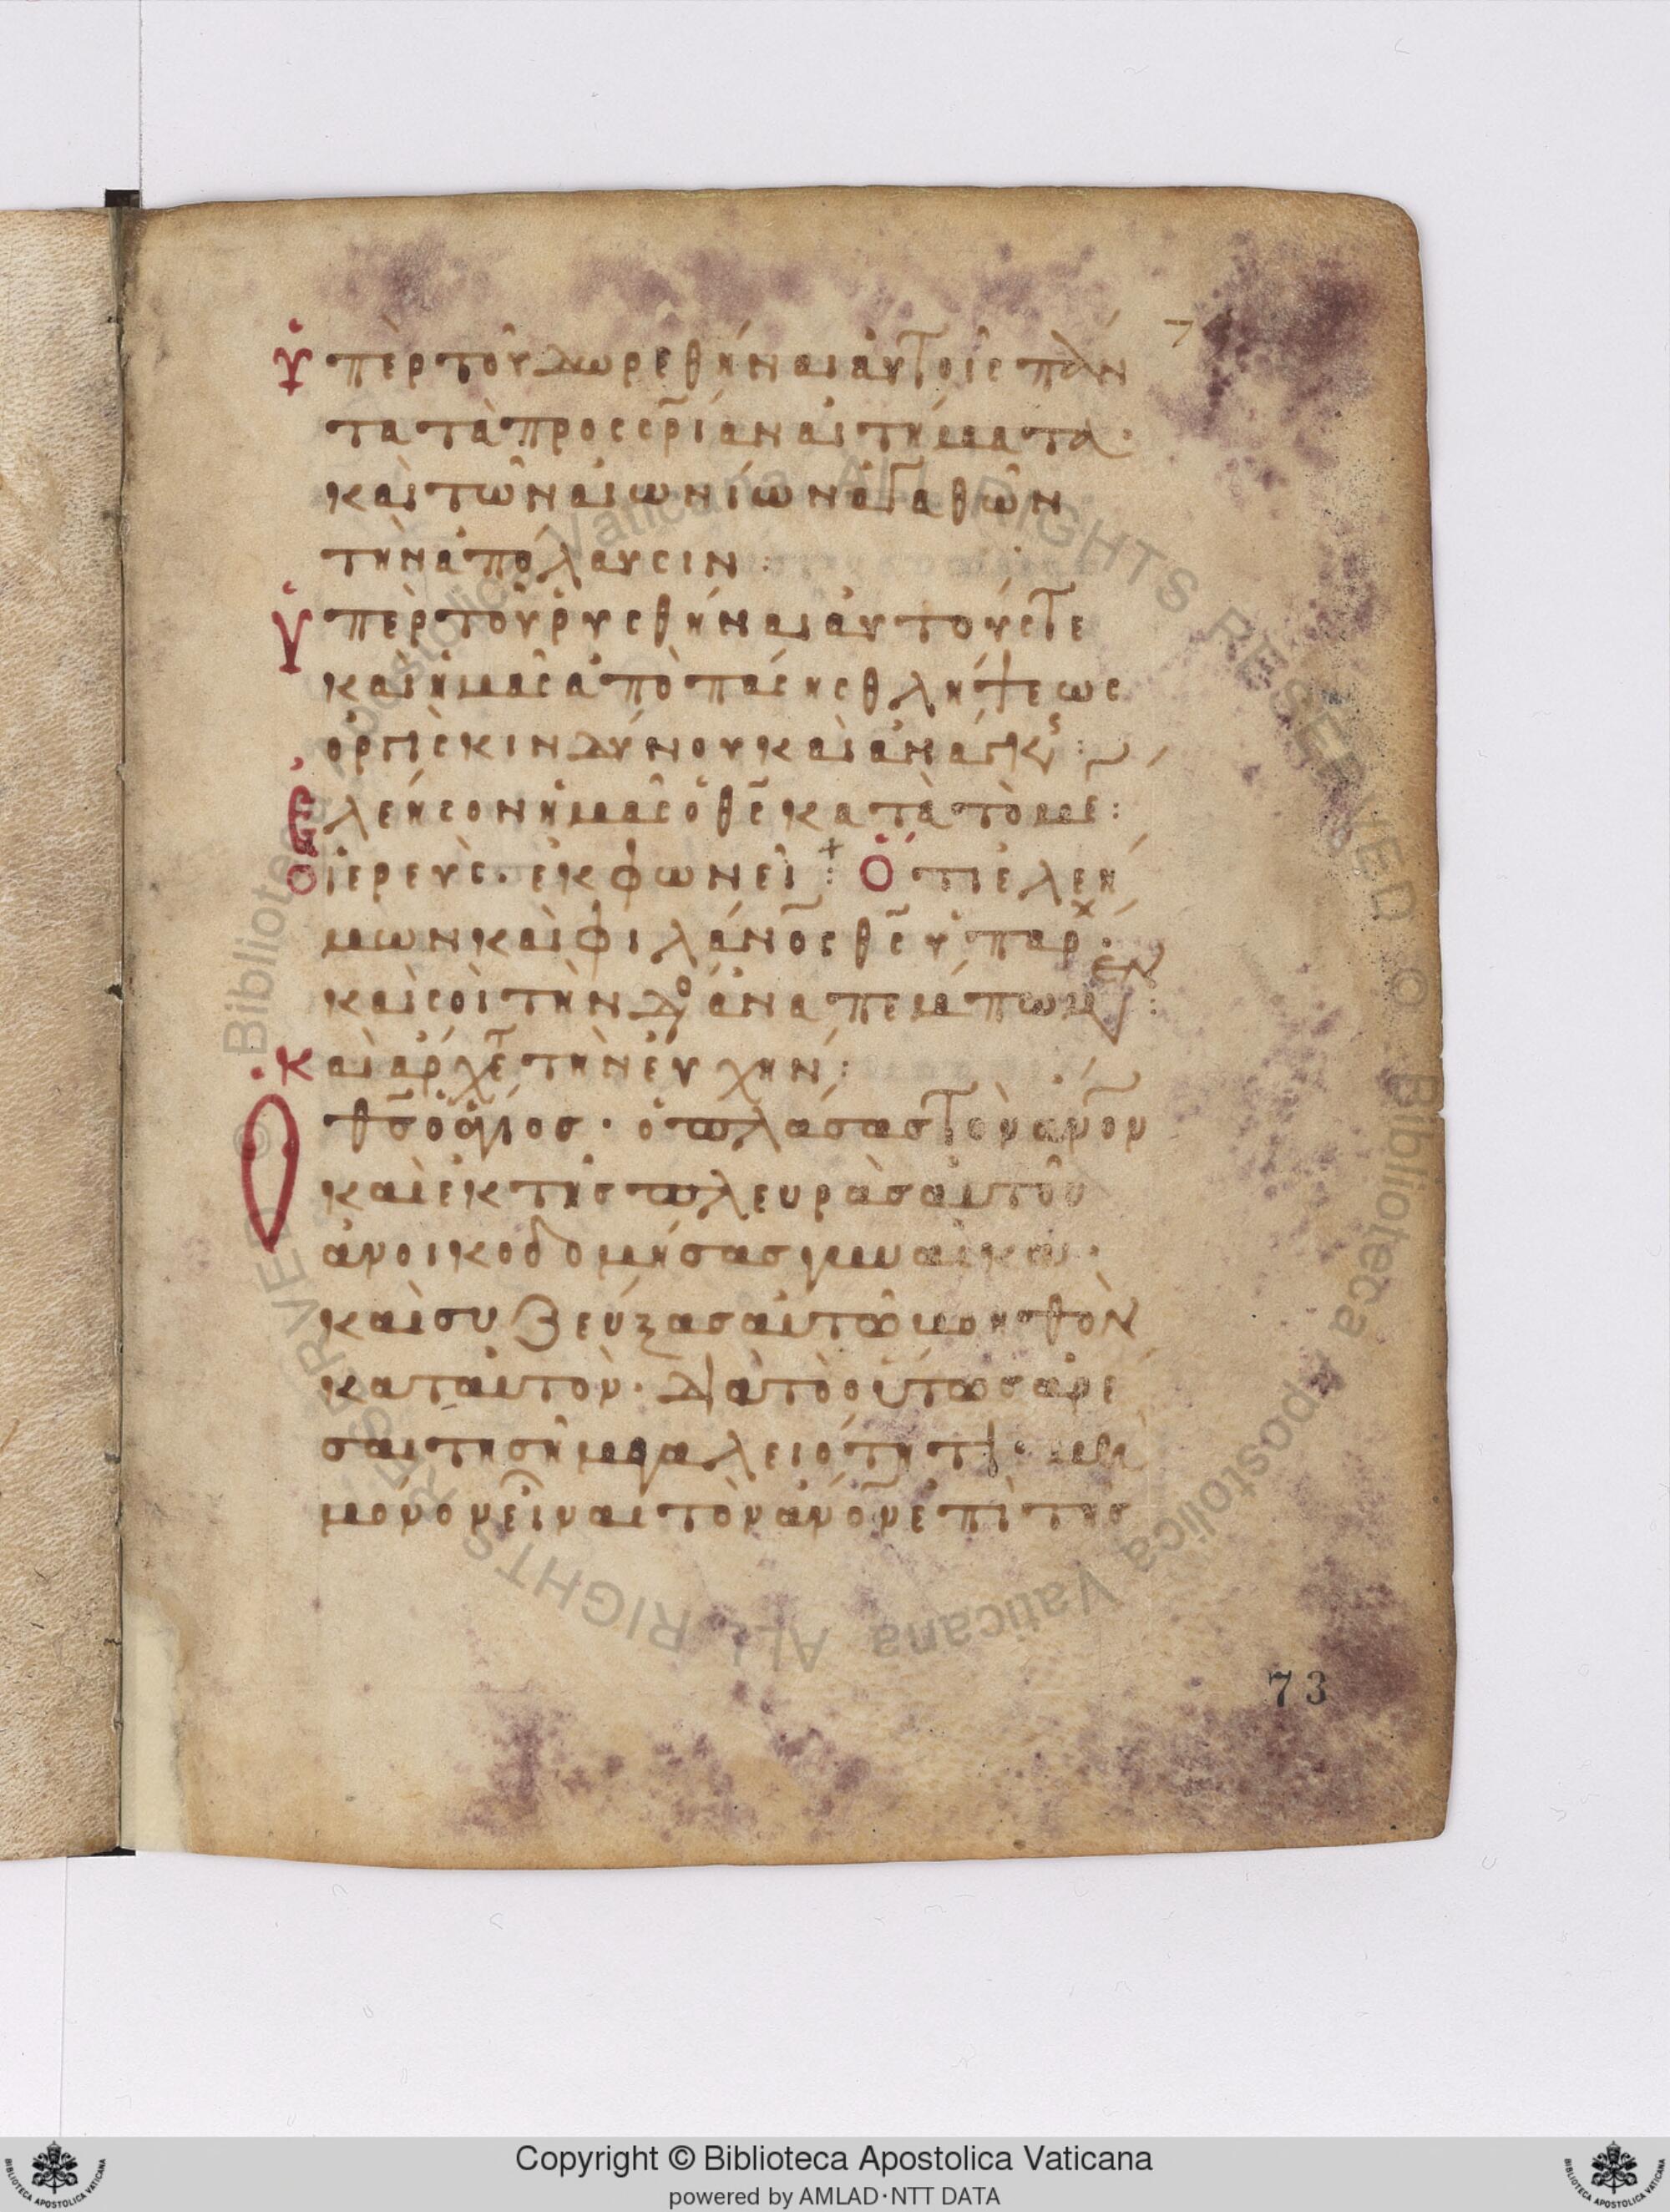 ὑπὲρ τοῦ δωρεθῆναι αὐτοῖς πάν
τα τὰ πρὸς σρίαν αἰτήματα·
καὶ τῶν αἰωνίων ἀγαθῶν
τὴν ἀπόλαυσιν:
ὑπὲρ τοῦ ῥυσθῆναι αὐτούς τε
καὶ ἡμᾶς ἀπὸ πάσης θλήψεως
ὀργῆς κινδύνου καὶ ἀνάγκς:
ἐλέησον ἡμᾶς ὁ θς κατὰ τὸ με:
ὁ ἱερεὺς· ἐκφωνεῖ: Ὅτι ἐλεή
μων καὶ φιλάνος θς ὑπάρχ·
καὶ σοὶ τὴν δο ἀναπέμπωμεν:
και ἄρχετ τὴν εὐχήν:
Ὁ θς ὁ ἅγιος· ὁ πλάσας τὸν ανον
καὶ ἐκ τῆς πλευρᾶς αὐτοῦ
ἀνοικοδομήσας γυναῖκα·
καὶ συζεύξας αὐτῶ βοηθὸν
κατ αὐτόν· διὰ τὸ οὕτως ἀρέ
σαι τῆ σῆ μεγαλειότητι· μὴ
μόνον εἶναι τὸν ἄνον ἐπὶ τῆς
73
Copyright © Biblioteca Apostolica Vaticana
powered by AMLAD·NTT DATA